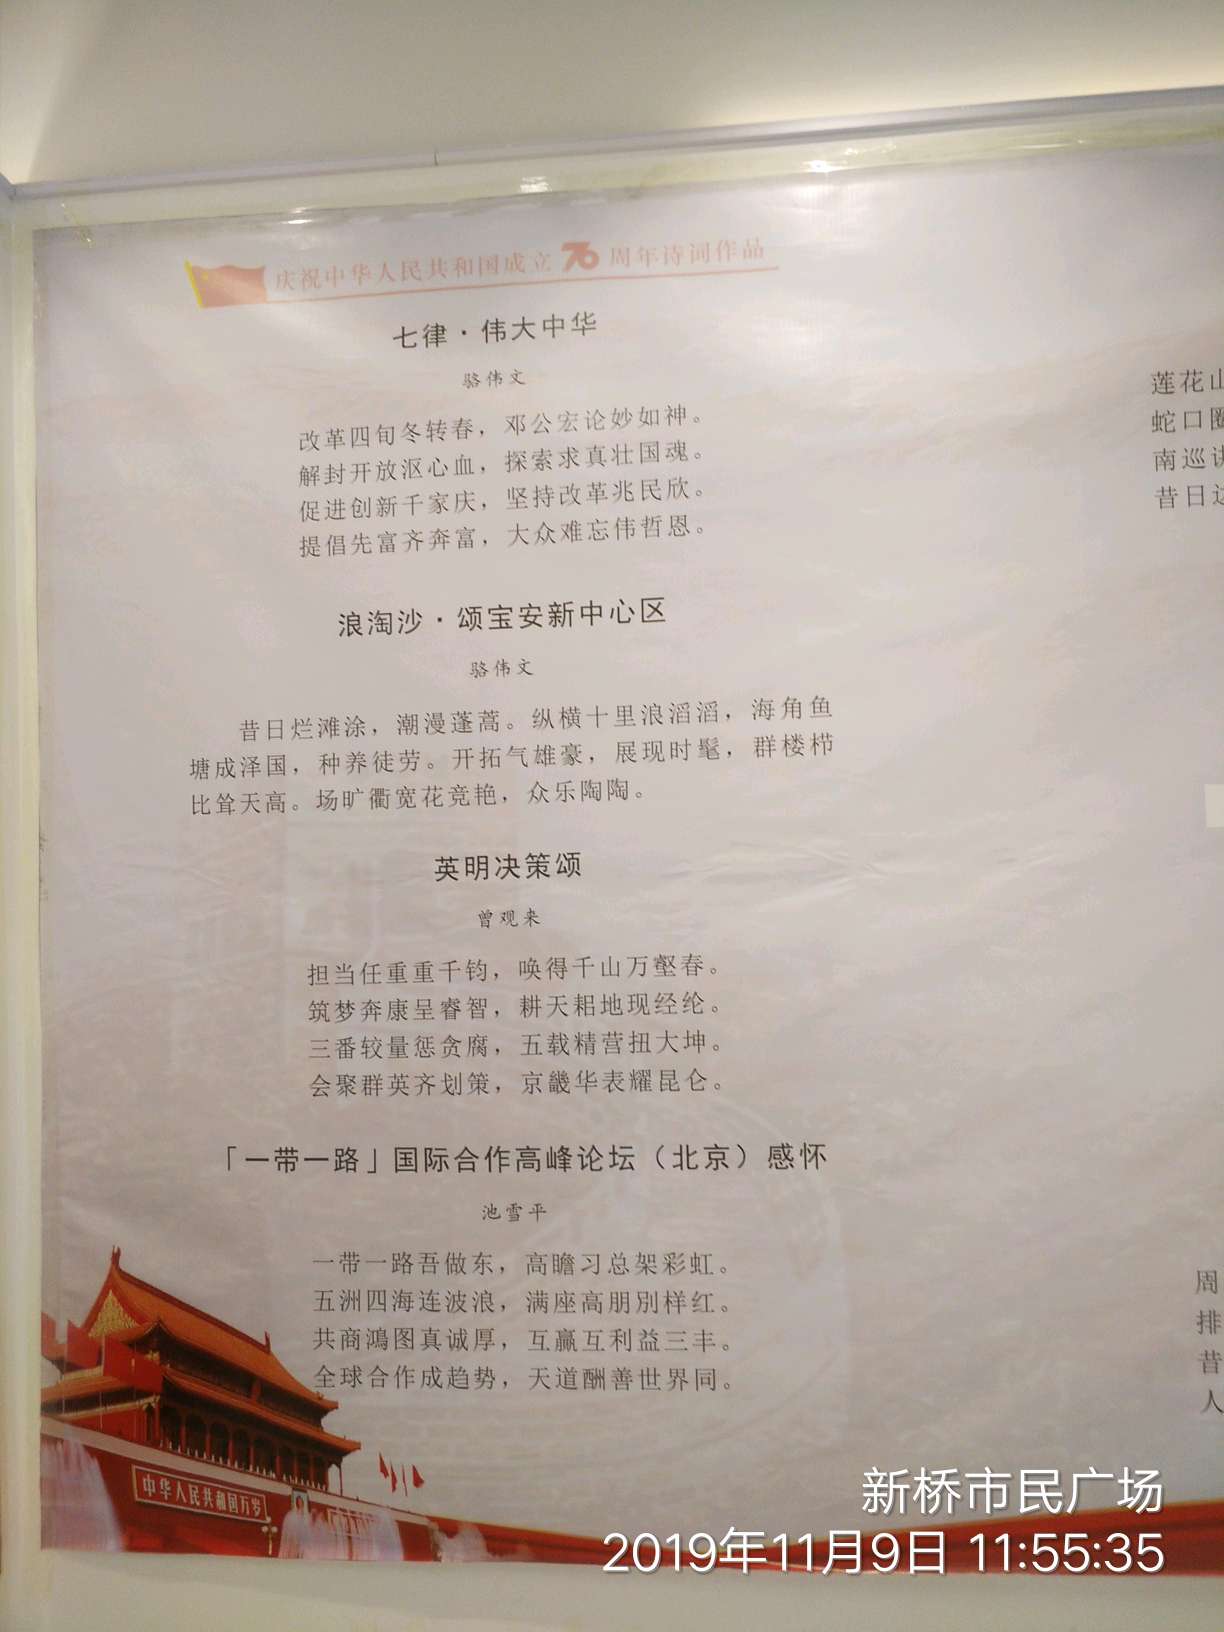 庆祝中华人民共和国成立70周年诗词作品
七律·伟大中华
骆伟文
改革四旬冬转春，邓公宏论妙如神。
解封开放沤心血，探索求真壮国魂。
促进创新千家庆，坚持改革兆民欣。
提倡先富齐奔富，大众难忘伟哲恩。
浪淘沙·颂宝安新中心区
骆伟文
昔日烂滩涂，潮漫蓬蒿。纵横十里浪滔滔，海角鱼
塘成泽国，种养徒劳。开拓气雄豪，展现时髦，群楼栉
比耸天高。场旷衢宽花竞艳，众乐陶陶。
英明决策颂
曾观来
担当任重重千钧，唤得千山万壑春。
筑梦奔康呈睿智，耕天耜地现经纶。
三番较量惩贪腐，五载精营扭大坤。
会聚群英齐划策，京畿华表耀昆仑。
「一带一路」国际合作高峰论坛（北京）感怀
池雪平
一带一路吾做东，高瞻习总架彩虹。
五洲四海连波浪，满座高朋别样红。
共商鸿图真诚厚，互赢互利益三丰。
全球合作成趋势，天道酬善世界同。
莲花山
蛇口
南巡
昔日
周
排
昔
人
中华人民共和国万岁
新桥市民广场
2019年11月9日 11:55:35